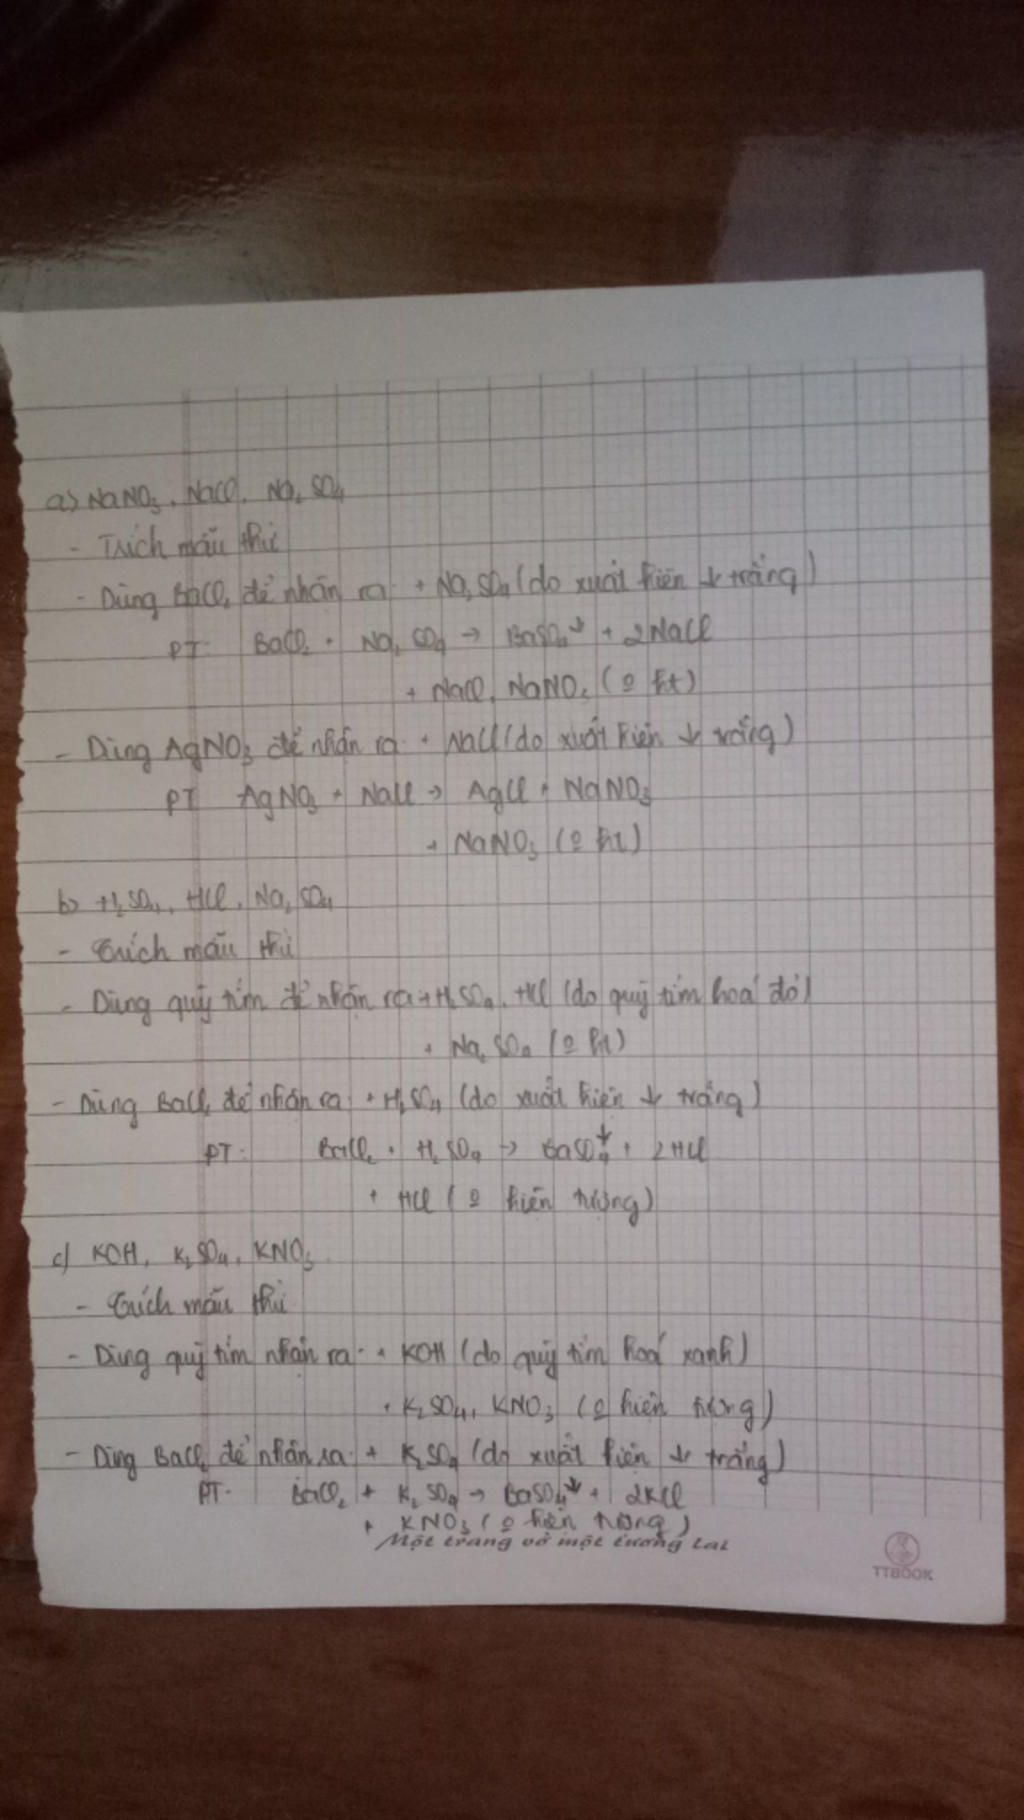 a) NaNO₃, NaCl, Na₂SO₄
- Trích mẫu thử
- Dùng BaCl₂ để nhận ra: + Na₂SO₄ (do xuất hiện ↓ trắng)
PT: BaCl₂ + Na₂SO₄ → BaSO₄↓ + 2NaCl
+ NaCl, NaNO₃ (o ht)
- Dùng AgNO₃ để nhận ra: + NaCl (do xuất hiện ↓ trắng)
PT AgNO₃ + NaCl → AgCl + NaNO₃
+ NaNO₃ (o ht)
b) H₂SO₄, HCl, Na₂SO₄
- Trích mẫu thử
- Dùng quỳ tím để nhận ra: + H₂SO₄, HCl (do quỳ tím hoá đỏ)
+ Na₂SO₄ (o ht)
- Dùng BaCl₂ để nhận ra: + H₂SO₄ (do xuất hiện ↓ trắng)
PT: BaCl₂ + H₂SO₄ → BaSO₄↓ + 2HCl
+ HCl (o hiện tượng)
c) KOH, K₂SO₄, KNO₃
- Trích mẫu thử
- Dùng quỳ tím nhận ra: + KOH (do quỳ tím hoá xanh)
+ K₂SO₄, KNO₃ (o hiện tượng)
- Dùng BaCl₂ để nhận ra + K₂SO₄ (do xuất hiện ↓ trắng)
PT: BaCl₂ + K₂SO₄ → BaSO₄↓ + 2KCl
+ KNO₃ (o hiện tượng)
Một trang vở một tương lai
TTBOOK